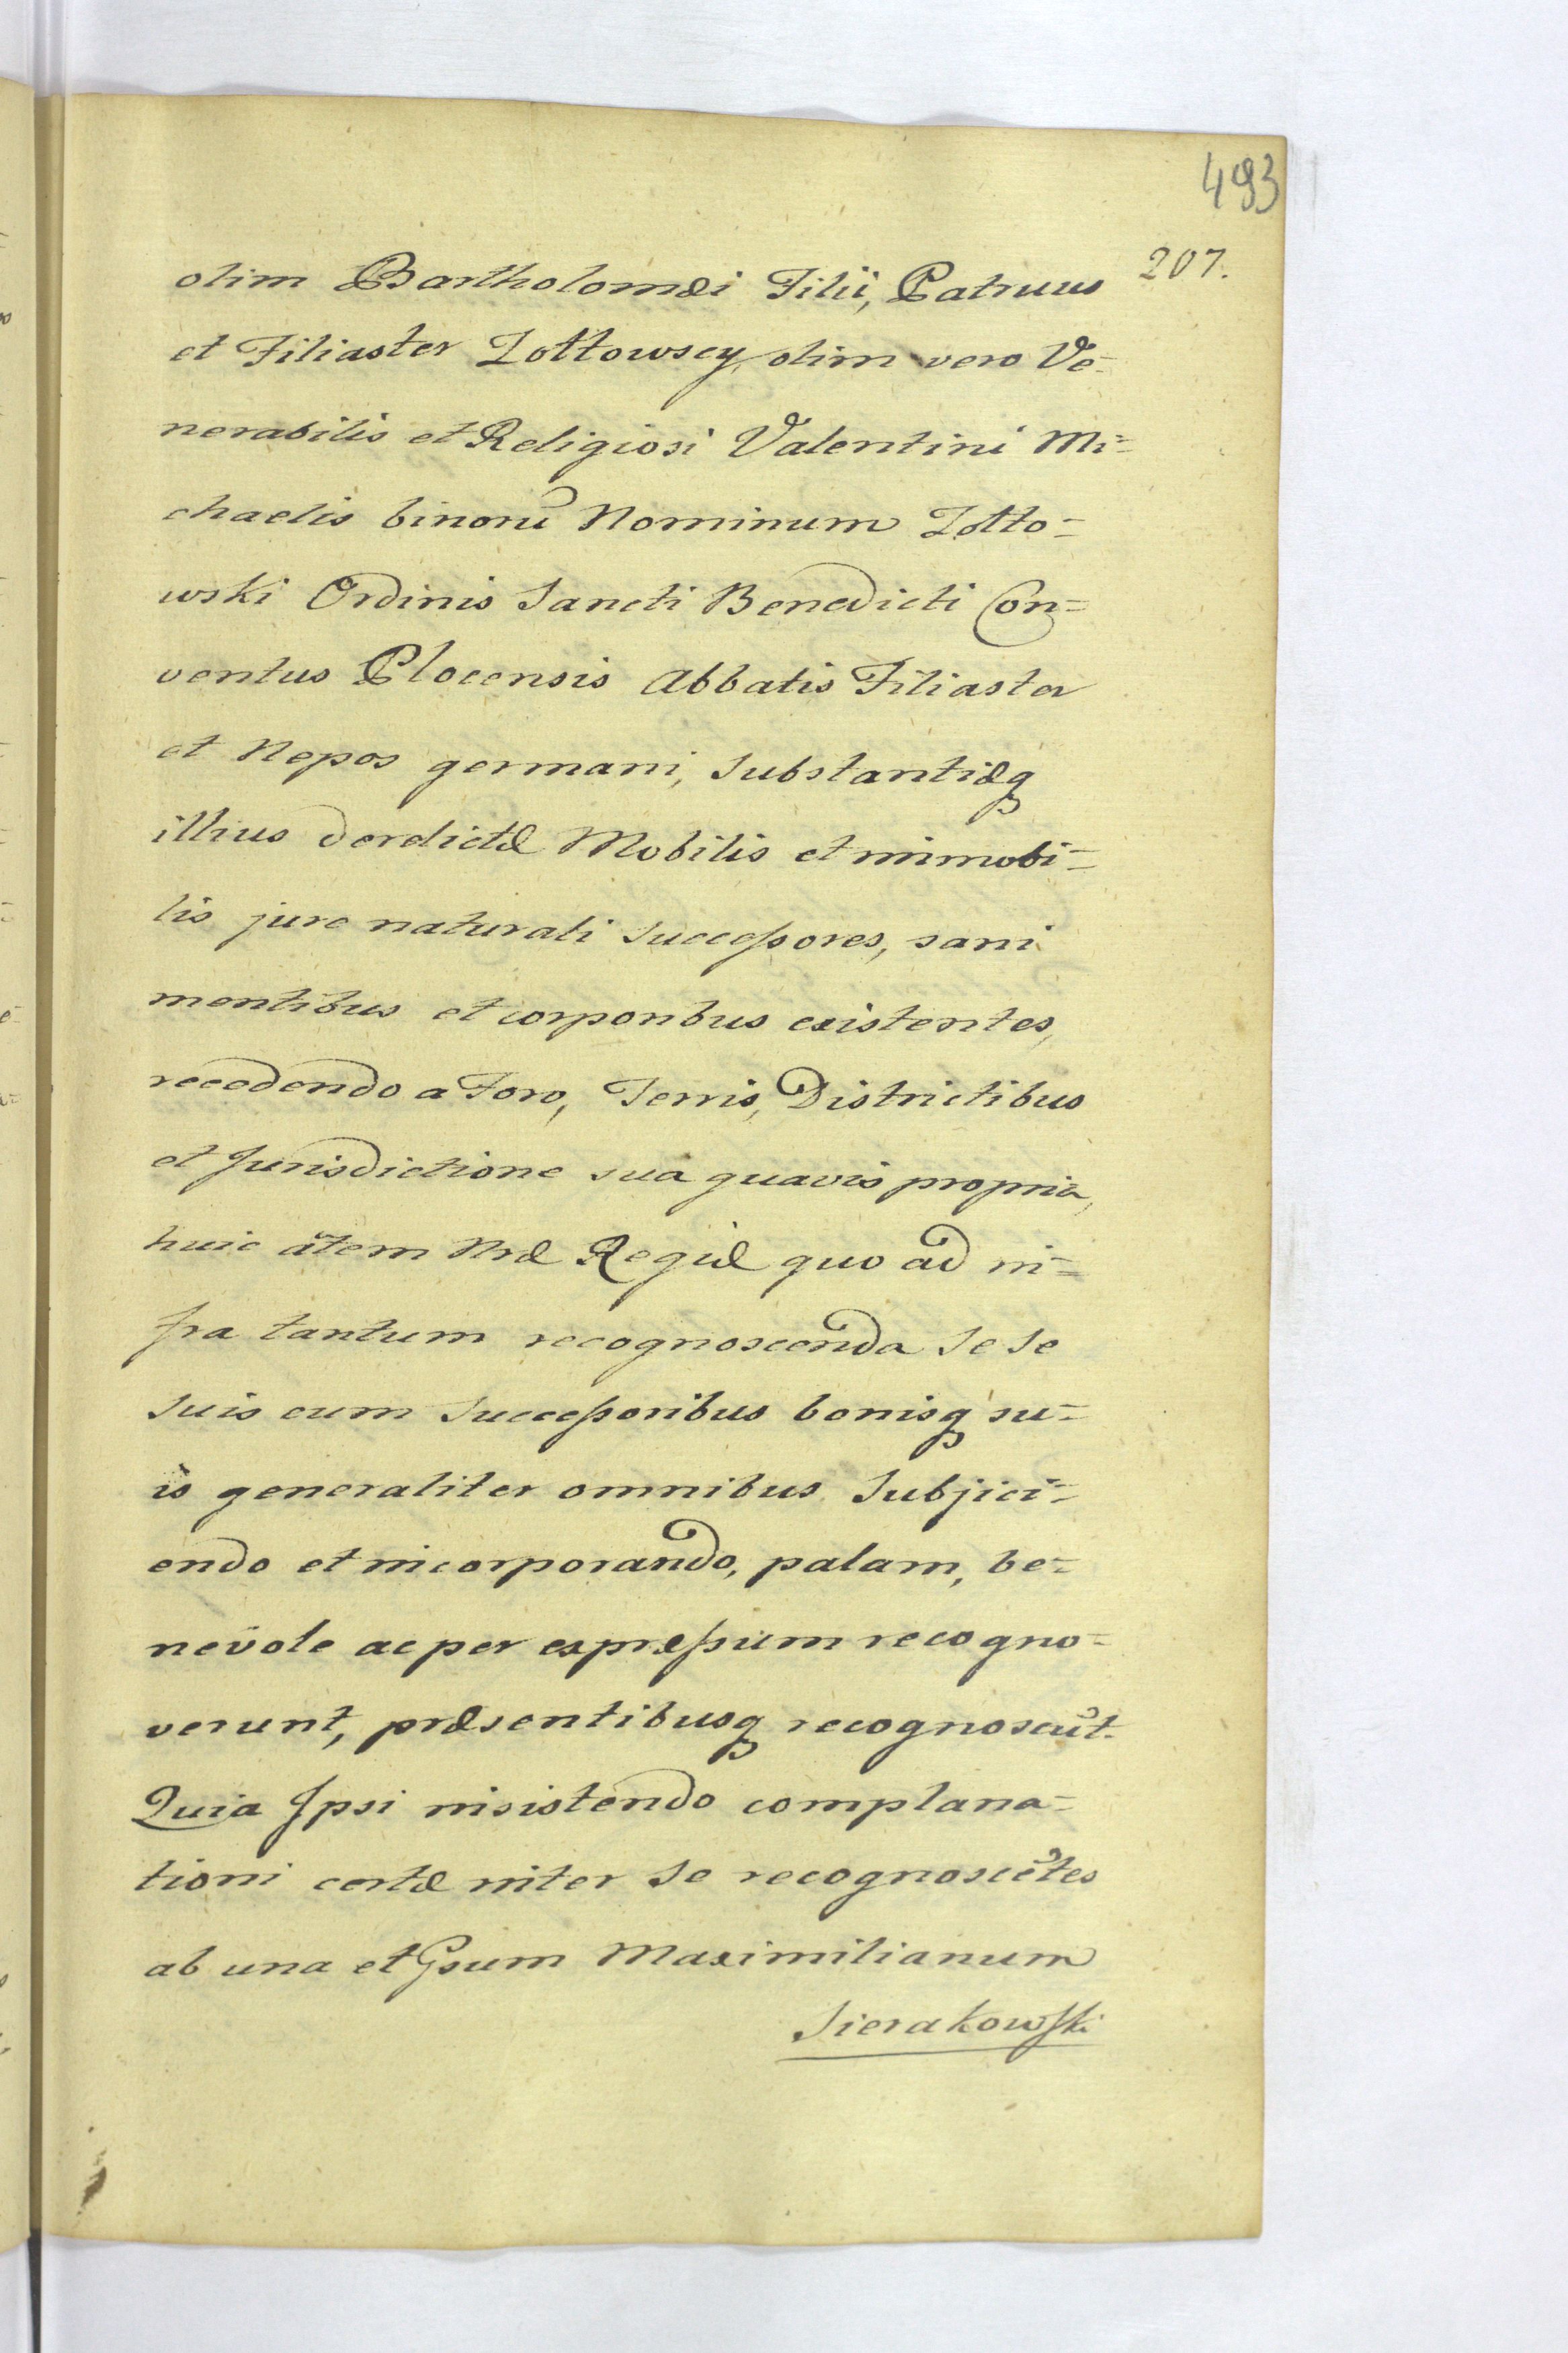 493
207.
olim Bartholomæi Filii, Patruus
et Filiaster Zołtowscy, olim vero Ve-
nerabilis et Religiosi Valentini Mi=
chaelis binorũ Nominum Zołto=
wski Ordinis Sancti Benedicti Con=
ventus Plocensis Abbatis Filiaster
et Nepos germani, Substantiæq
illius derelictæ Mobilis et immobi=
lis jure naturali Successores, sani
mentibus et corporibus existentes,
recedendo a Foro, Terris, Districtibus
et Jurisdictione sua quavis propria,
huic ãtem Nræ Regiæ quo ad in=
fra tantum recognoscenda Se Se
Suis cum Successoribus bonisq su=
is generaliter omnibus Subjici=
endo et incorporando, palam, be=
nevole ac per expræssum recogno=
verunt, præsentibusq recognoscũt.
Quia Ipsi insistendo complana=
tioni certæ inter Se recognoscẽtes
ab una et Gsum Maximilianum
Sierakowski